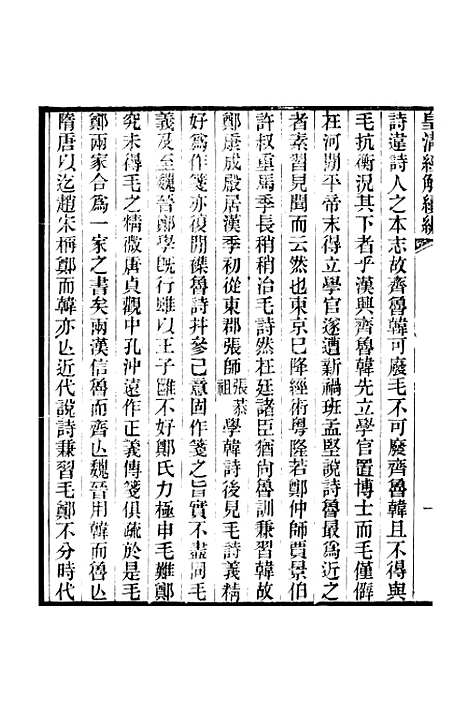 皇清經解續編
一
詩違詩人之本志故齊魯韓可廢毛不可廢齊魯韓且不得與
毛抗衡況其下者乎漢興齊魯韓先立學官置博士而毛僅僻
在河閒平帝末得立學官遂遭新禍班孟堅說詩魯最爲近之
者素習見聞而云然也東京已降經術粵隆若鄭仲師賈景伯
許叔重馬季長稍稍治毛詩然在廷諸臣猶尙魯訓兼習韓故
鄭康成殷居漢季初從東郡張師張恭祖學韓詩後見毛詩義精
好爲作箋亦復閒襍魯詩幷參己意固作箋之旨實不盡同毛
義及至魏晉鄭學旣行雖以王子雝不好鄭氏力極申毛難鄭
究未得毛之精微唐貞觀中孔沖遠作正義傳箋俱疏於是毛
鄭兩家合爲一家之書矣兩漢信魯而齊亾魏晉用韓而魯亾
隋唐以迄趙宋稱鄭而韓亦亾近代說詩兼習毛鄭不分時代